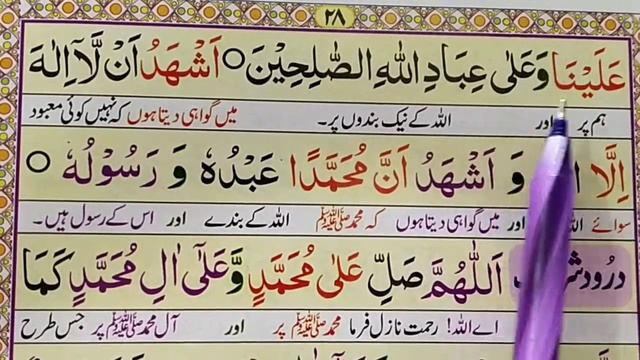 ٢٨
عَلَيْنَا وَعَلٰى عِبَادِ اللهِ الصّٰلِحِيْنَ ○ اَشْهَدُ اَنْ لَّآ اِلٰهَ
ہم پر اور اللہ کے نیک بندوں پر۔ میں گواہی دیتا ہوں کہ نہیں کوئی معبود
اِلَّا وَ اَشْهَدُ اَنَّ مُحَمَّدًا عَبْدُهٗ وَ رَسُوْلُهٗ ○
سوائے اور میں گواہی دیتا ہوں کہ محمد ﷺ اللہ کے بندے اور اس کے رسول ہیں۔
درود اَللّٰهُمَّ صَلِّ عَلٰى مُحَمَّدٍ وَّعَلٰٓى اٰلِ مُحَمَّدٍ كَمَا
اے اللہ! رحمت نازل فرما محمد ﷺ پر اور آل محمد ﷺ پر جس طرح